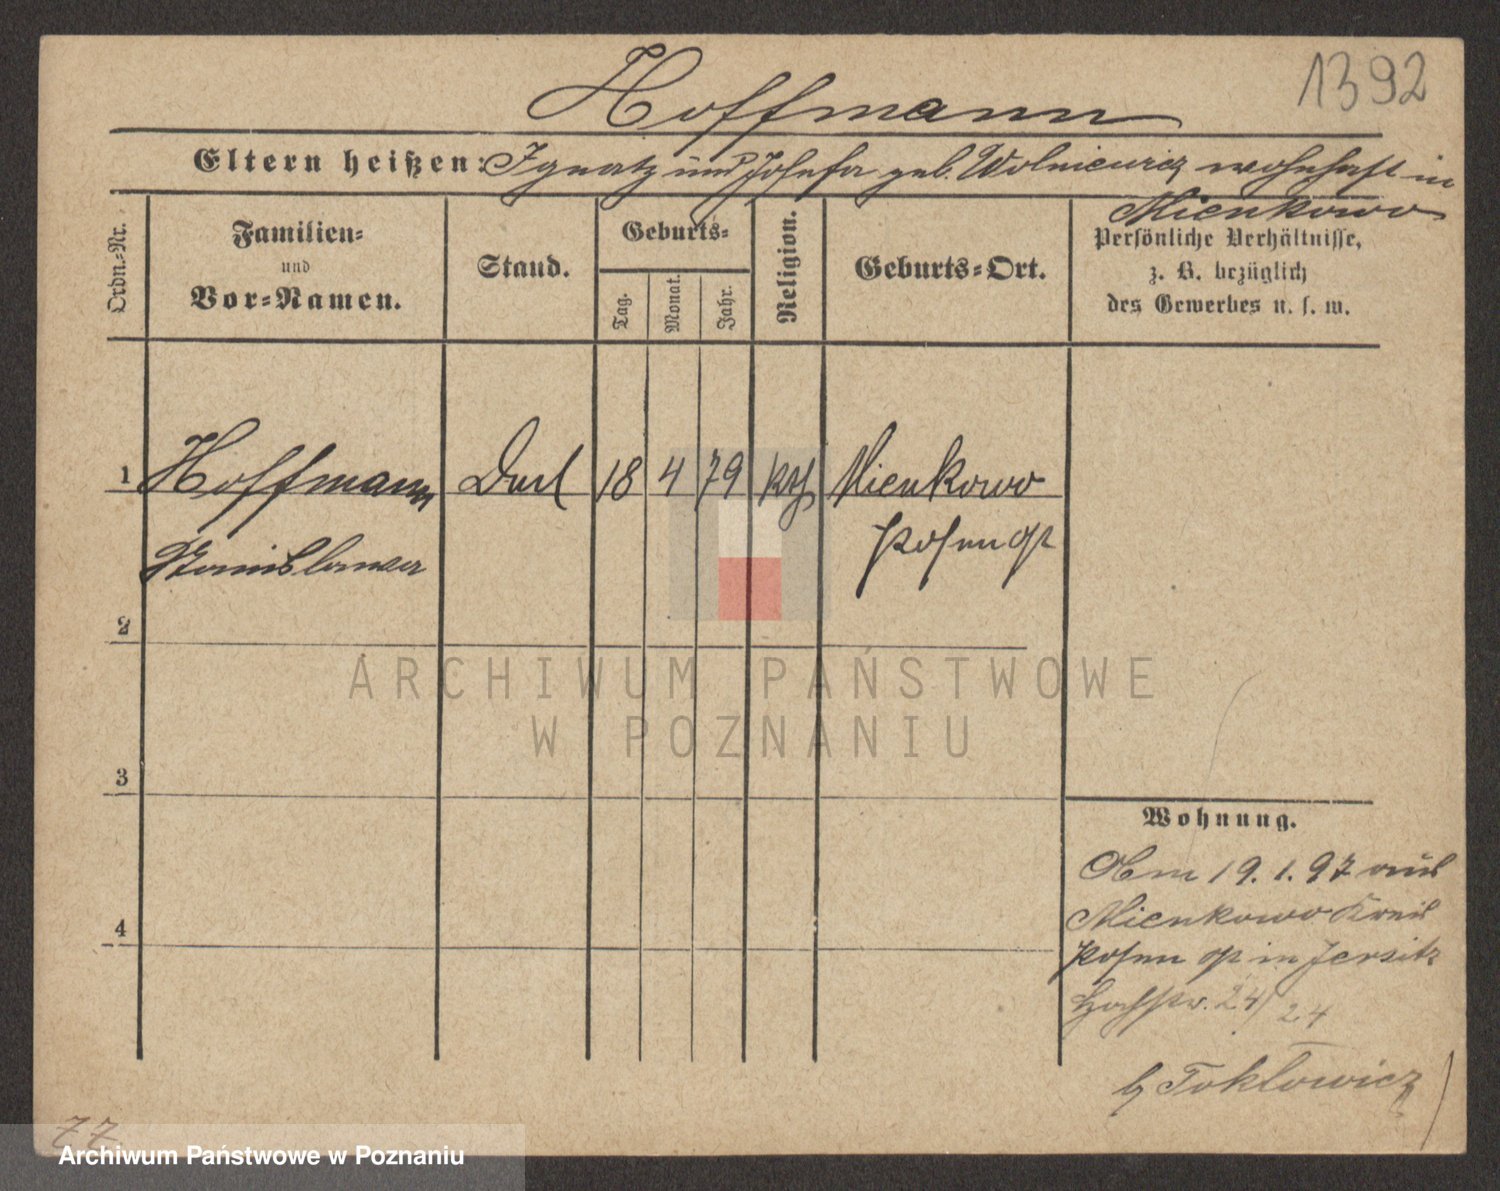 Hoffmann
1392
Eltern heißen: Ignatz und Josefa geb. Wolniewicz wohnhaft in
Mienkowo
Ordn.-Nr.
Familien-
und
Vor-Namen.
Stand.
Geburts-
Tag.
Monat.
Jahr.
Religion.
Geburts-Ort.
Persönliche Verhältnisse,
z. B. bezüglich
des Gewerbes u. s. w.
1 Hoffmann 18 4 79 kth Mienkowo
Stanislawa Posen O/
2
3
4
Wohnung.
Am 19.1.97 aus
Mienkowo Kreis
Posen in Jersitz
Hochstr. 24/ 24
b/ Toklowicz
77
ARCHIWUM PAŃSTWOWE
W POZNANIU
Archiwum Państwowe w Poznaniu